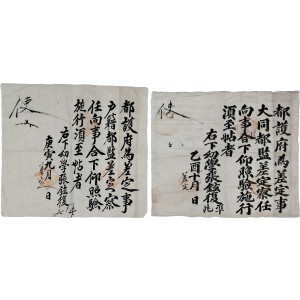 都護府爲差定事
戶籍都監差定察
任向事合下仰照驗
施行須至帖者
右下幼學張鉉復
庚寅九月 日
使
都護府爲差定事
大同都監差定察任
向事合下仰照驗施行
須至帖者
右下幼學張鉉復
乙酉十月 日
使